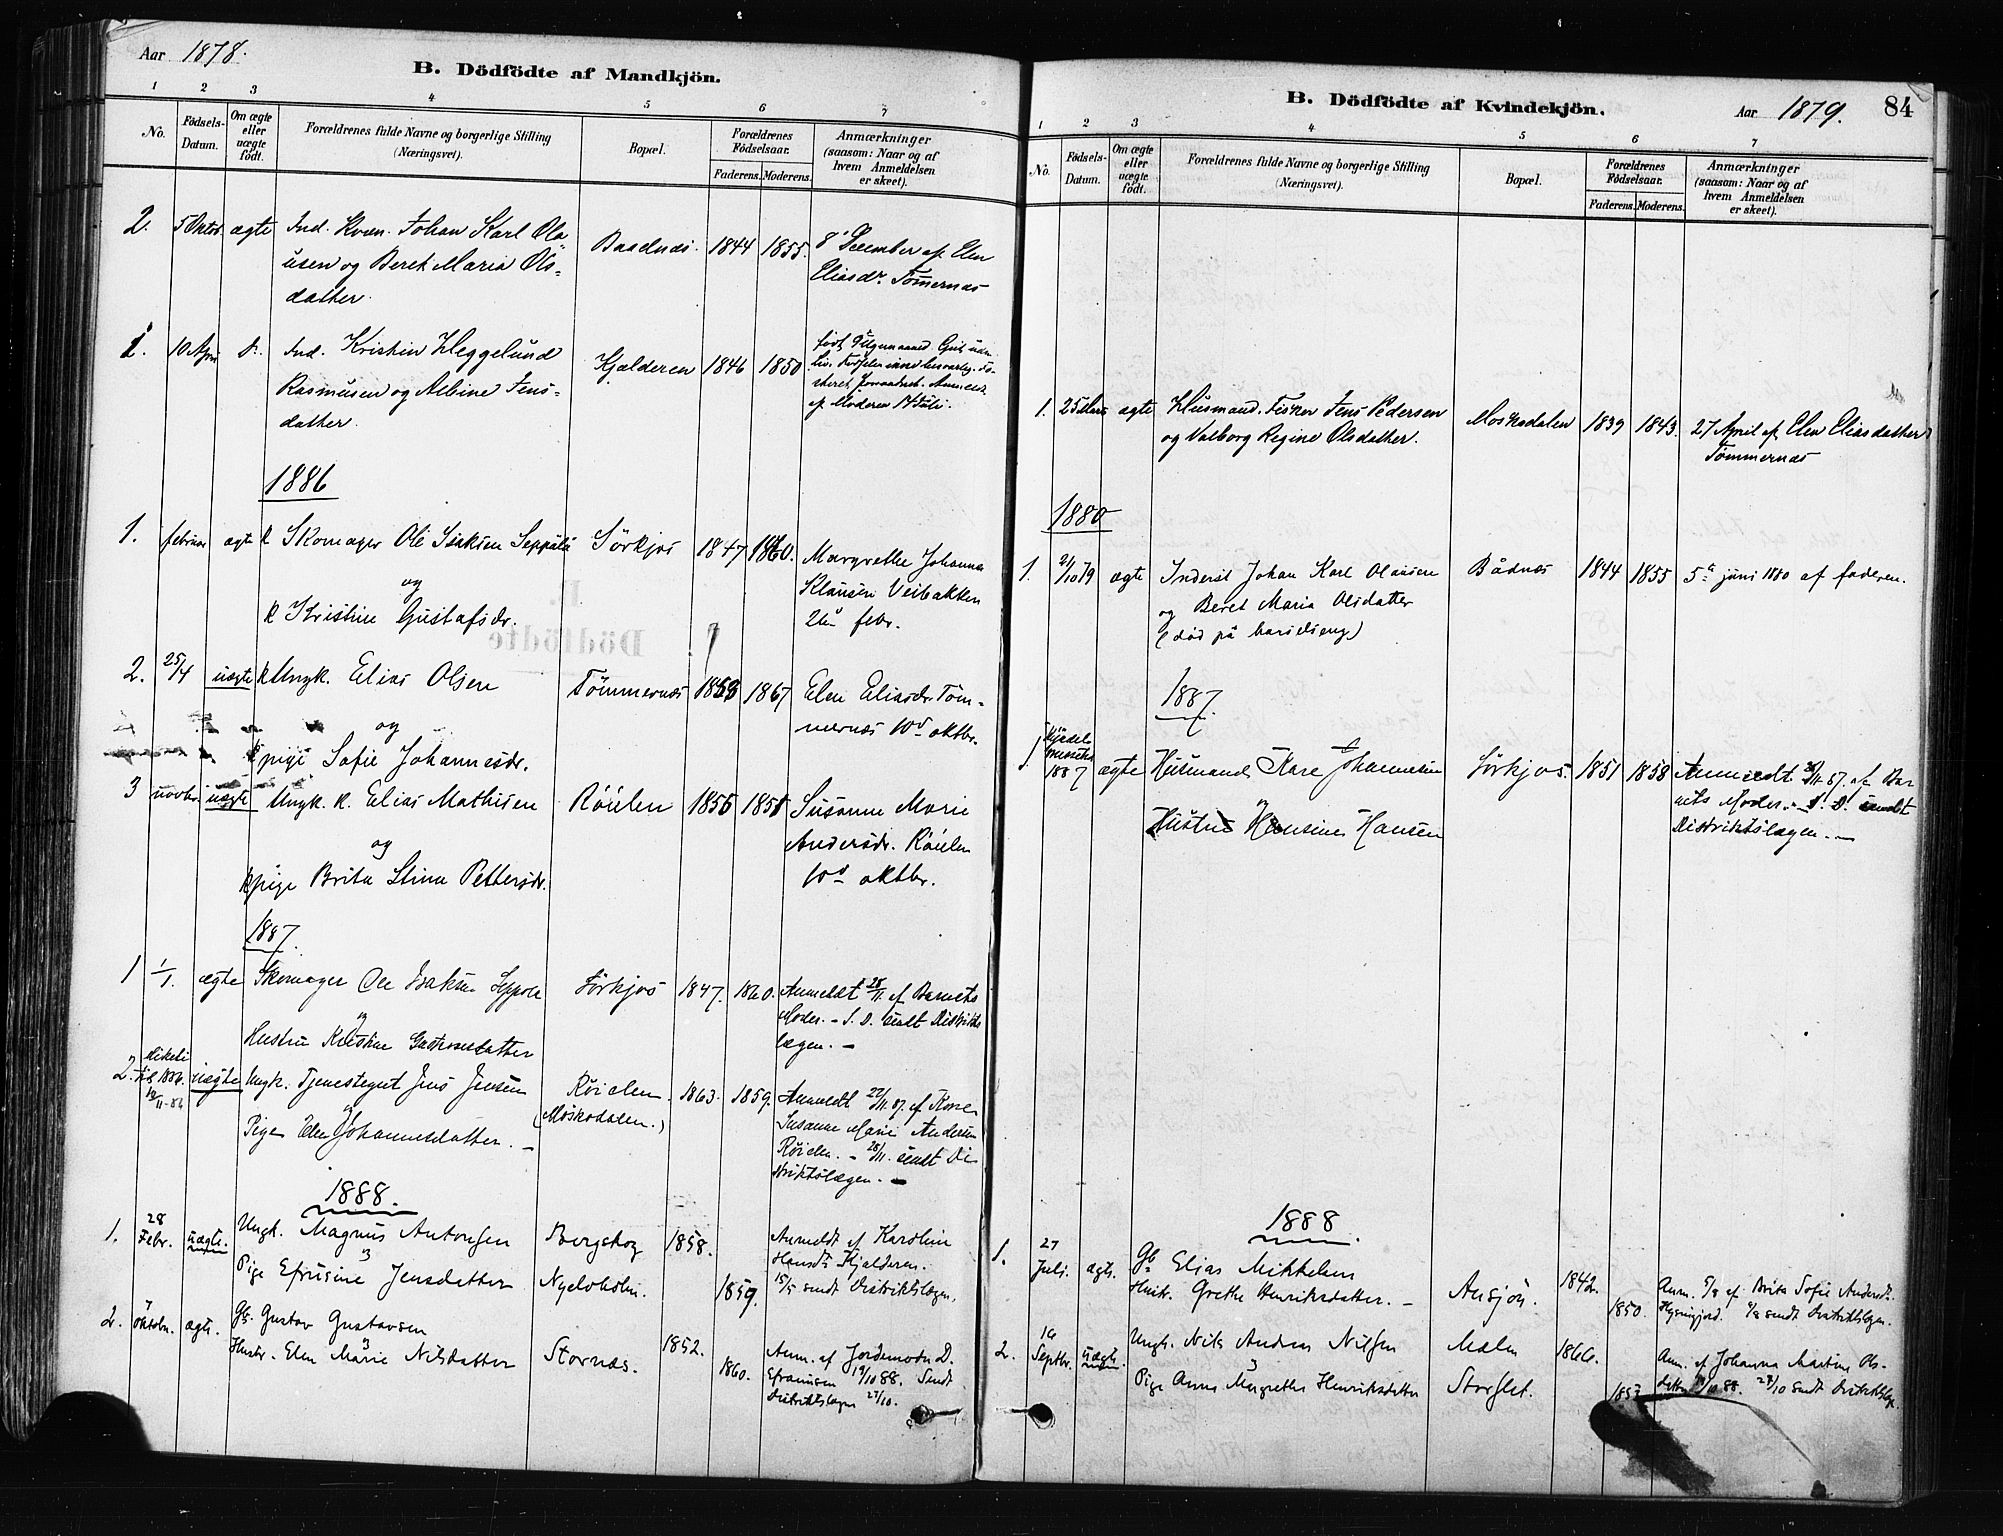 Aar 1878.
B. Dödfödte af Mandkjön.
1 2 3 4 5 6 7
No.
Födsels-
Datum.
Om ægte
eller
uægte
födt.
Forældrenes fulde Navne og borgerlige Stilling
(Næringsvei).
Bopæl.
Forældrenes
Födselsaar.
Faderens. Moderens.
Anmærkninger
(saasom: Naar og af
hvem Anmeldelsen
er skeet).
2. 5 Oktob ægte Ind. Kvæn. Johan Karl Ola-
usen og Beret Maria Ols-
datter.
Baadnæs. 1844 1855.
8 December af Elen
Eliasdr. Tömernæs
1. 10 April Ind. Kristin Heggelund
Rasmusen og Albine Jens-
datter.
Kjælderen 1846 1850
af Moderen Juli.
1886
1. februar ægte k Skomager Ole Isaksen Seppälä
og
k Kristine Gustafsdr.
Sörkjos 1847 1860.
Margrethe Johanna
Klausen Veibakken
febr.
2. 25/4 uægte k Ungk. Elias Olsen
og
k pige Sofie Johannesdr.
Tömmernæs 1867
Elen Eliasdr. Töm-
mernæs 10d oktbr.
3 novbr. uægte Ungk. k. Elias Mathisen
og
k pige Brita Stina Pettersdr.
Röielen
Susanne Marie
Andersdr. Röielen
10d oktbr.
1887.
1 1/1. ægte Skomager Ole Isaksen Seppola
og
Hustru Kristine
Sörkjos 1847. 1860.
Anmeldt 28/11. af Barnets
Moder. – S. D. sendt Distrikts
lægen. –
2. uægte Ungk. Tjenestegut Jens Jensen
og
Pige Elen Johannesdatter. –
Röielen
(Moskodalen.)
1863. 1859.
Anmeldt 22/11. 87. af Kone
Susanne Marie Andersen
Röielen. – 28/11. sendt Di
striktslægen. –
1888.
1. 28
Febr. uægte. Ungk. Magnus Antonsen
Pige Efrusine Jensdatter
Bergskog
Nyelvholm.
1858.
1859.
Anmeldt af Karoline
Hansdr. Kjælderen.
15/5 sendt Distriktslægen.
2. Oktobr. ægte. Gb. Gustav Gustavsen
Hustr. Elen Marie Nilsdatter
Stornæs. 1852.
1860.
Anm. af Jordemoder D.
Efraimsen 19/10 88. Sendt
Distriktslægen 27/10.
B. Dödfödte af Kvindekjön.
Aar 1879. 84
1 2 3 4 5 6 7
No.
Födsels-
Datum.
Om ægte
eller
uægte
födt.
Forældrenes fulde Navne og borgerlige Stilling
(Næringsvei).
Bopæl.
Forældrenes
Födselsaar.
Faderens. Moderens.
Anmærkninger
(saasom: Naar og af
hvem Anmeldelsen
er skeet).
1. ægte Husmand. Fisker Jens Pedersen
og Valborg Regine Olsdatter.
Moskodalen 1839 1843.
27 April af Elen Eliasdatter
Tömmernæs
1880
1. 2/10 79 ægte Inderst Johan Karl Olausen
og Beret Maria Olsdatter
(död på barselseng)
Bådnæs 1844 1855
5te juni 1880 af faderen.
1887.
1 1887 ægte Husmand Kare Johannesen
Hustru Hansine Hansen
Sörkjos. 1851 1858
Anmeldt 87. af Bar
nets Moder. – S. D. sendt
Distriktslægen. –
1888.
1. 27
Juli. ægte. Gb. Elias Mikkelsen
Hust. Grethe Henriksdatter. –
Ansjön. 1842.
1850.
Anm. 5/8 af Brita Sofie Andersdr.
sendt Distriktslægen.
2. 14
Septbr. uægte. Ungk. Nils Andreas Nilsen
Pige Anna Margrethe Henriksdatter
Mælen
Storslet.
1866.
Anm. af Johanna Martine Ols-
datter 19/10 88. 27/10 sendt Distriktslæge.